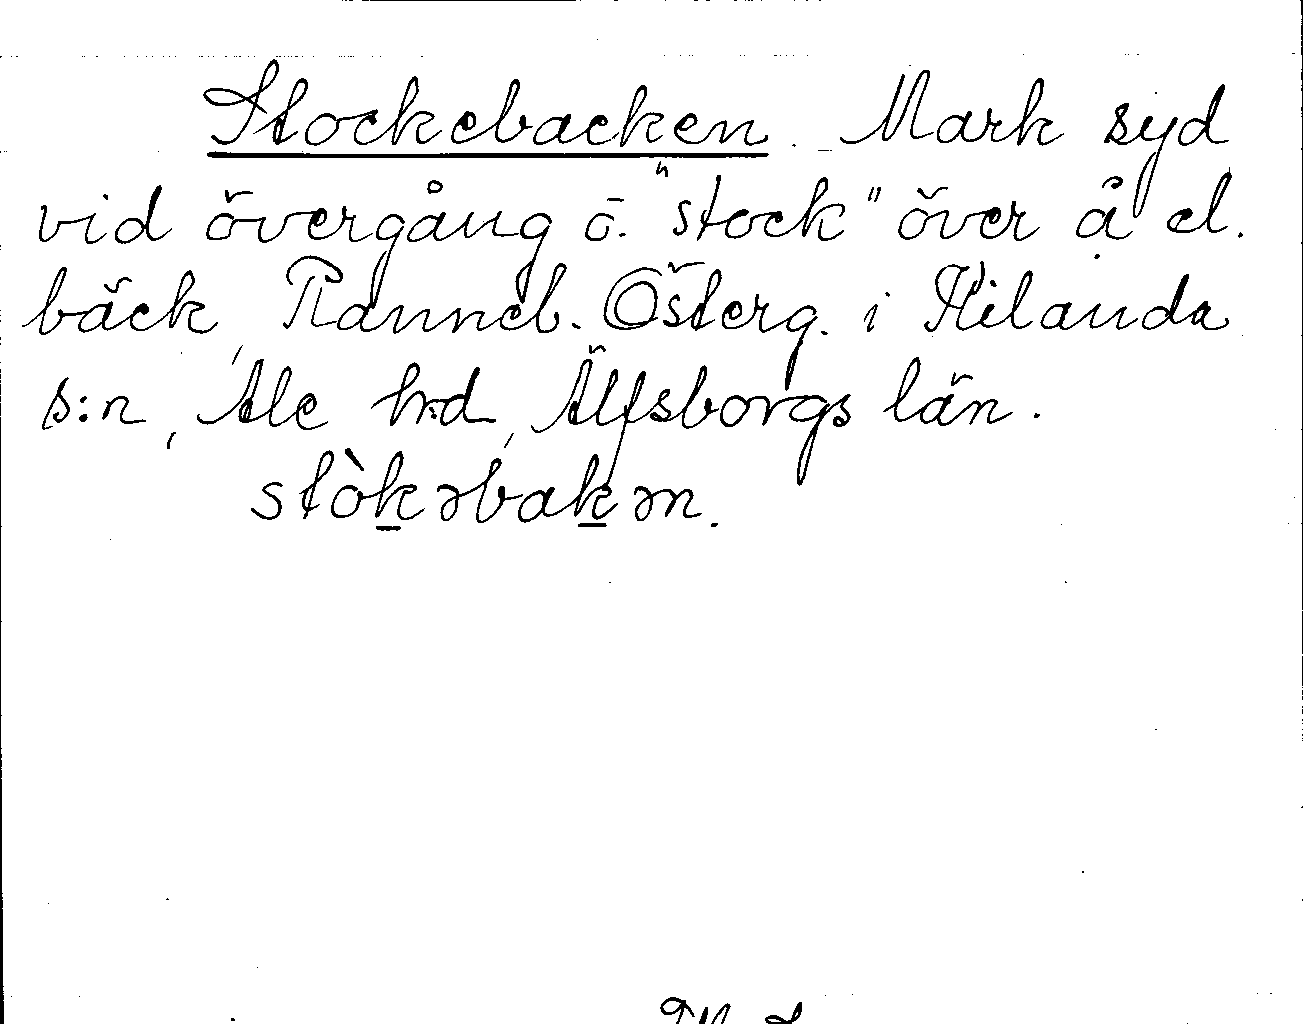 Stockebacken. Mark syd
vid övergång ö. "stock" över å el.
bäck, Ramneb. Österg. i Kilanda
s:n, Ale h:d, Älfsborgs län.
stòk̲əbak̲ən.